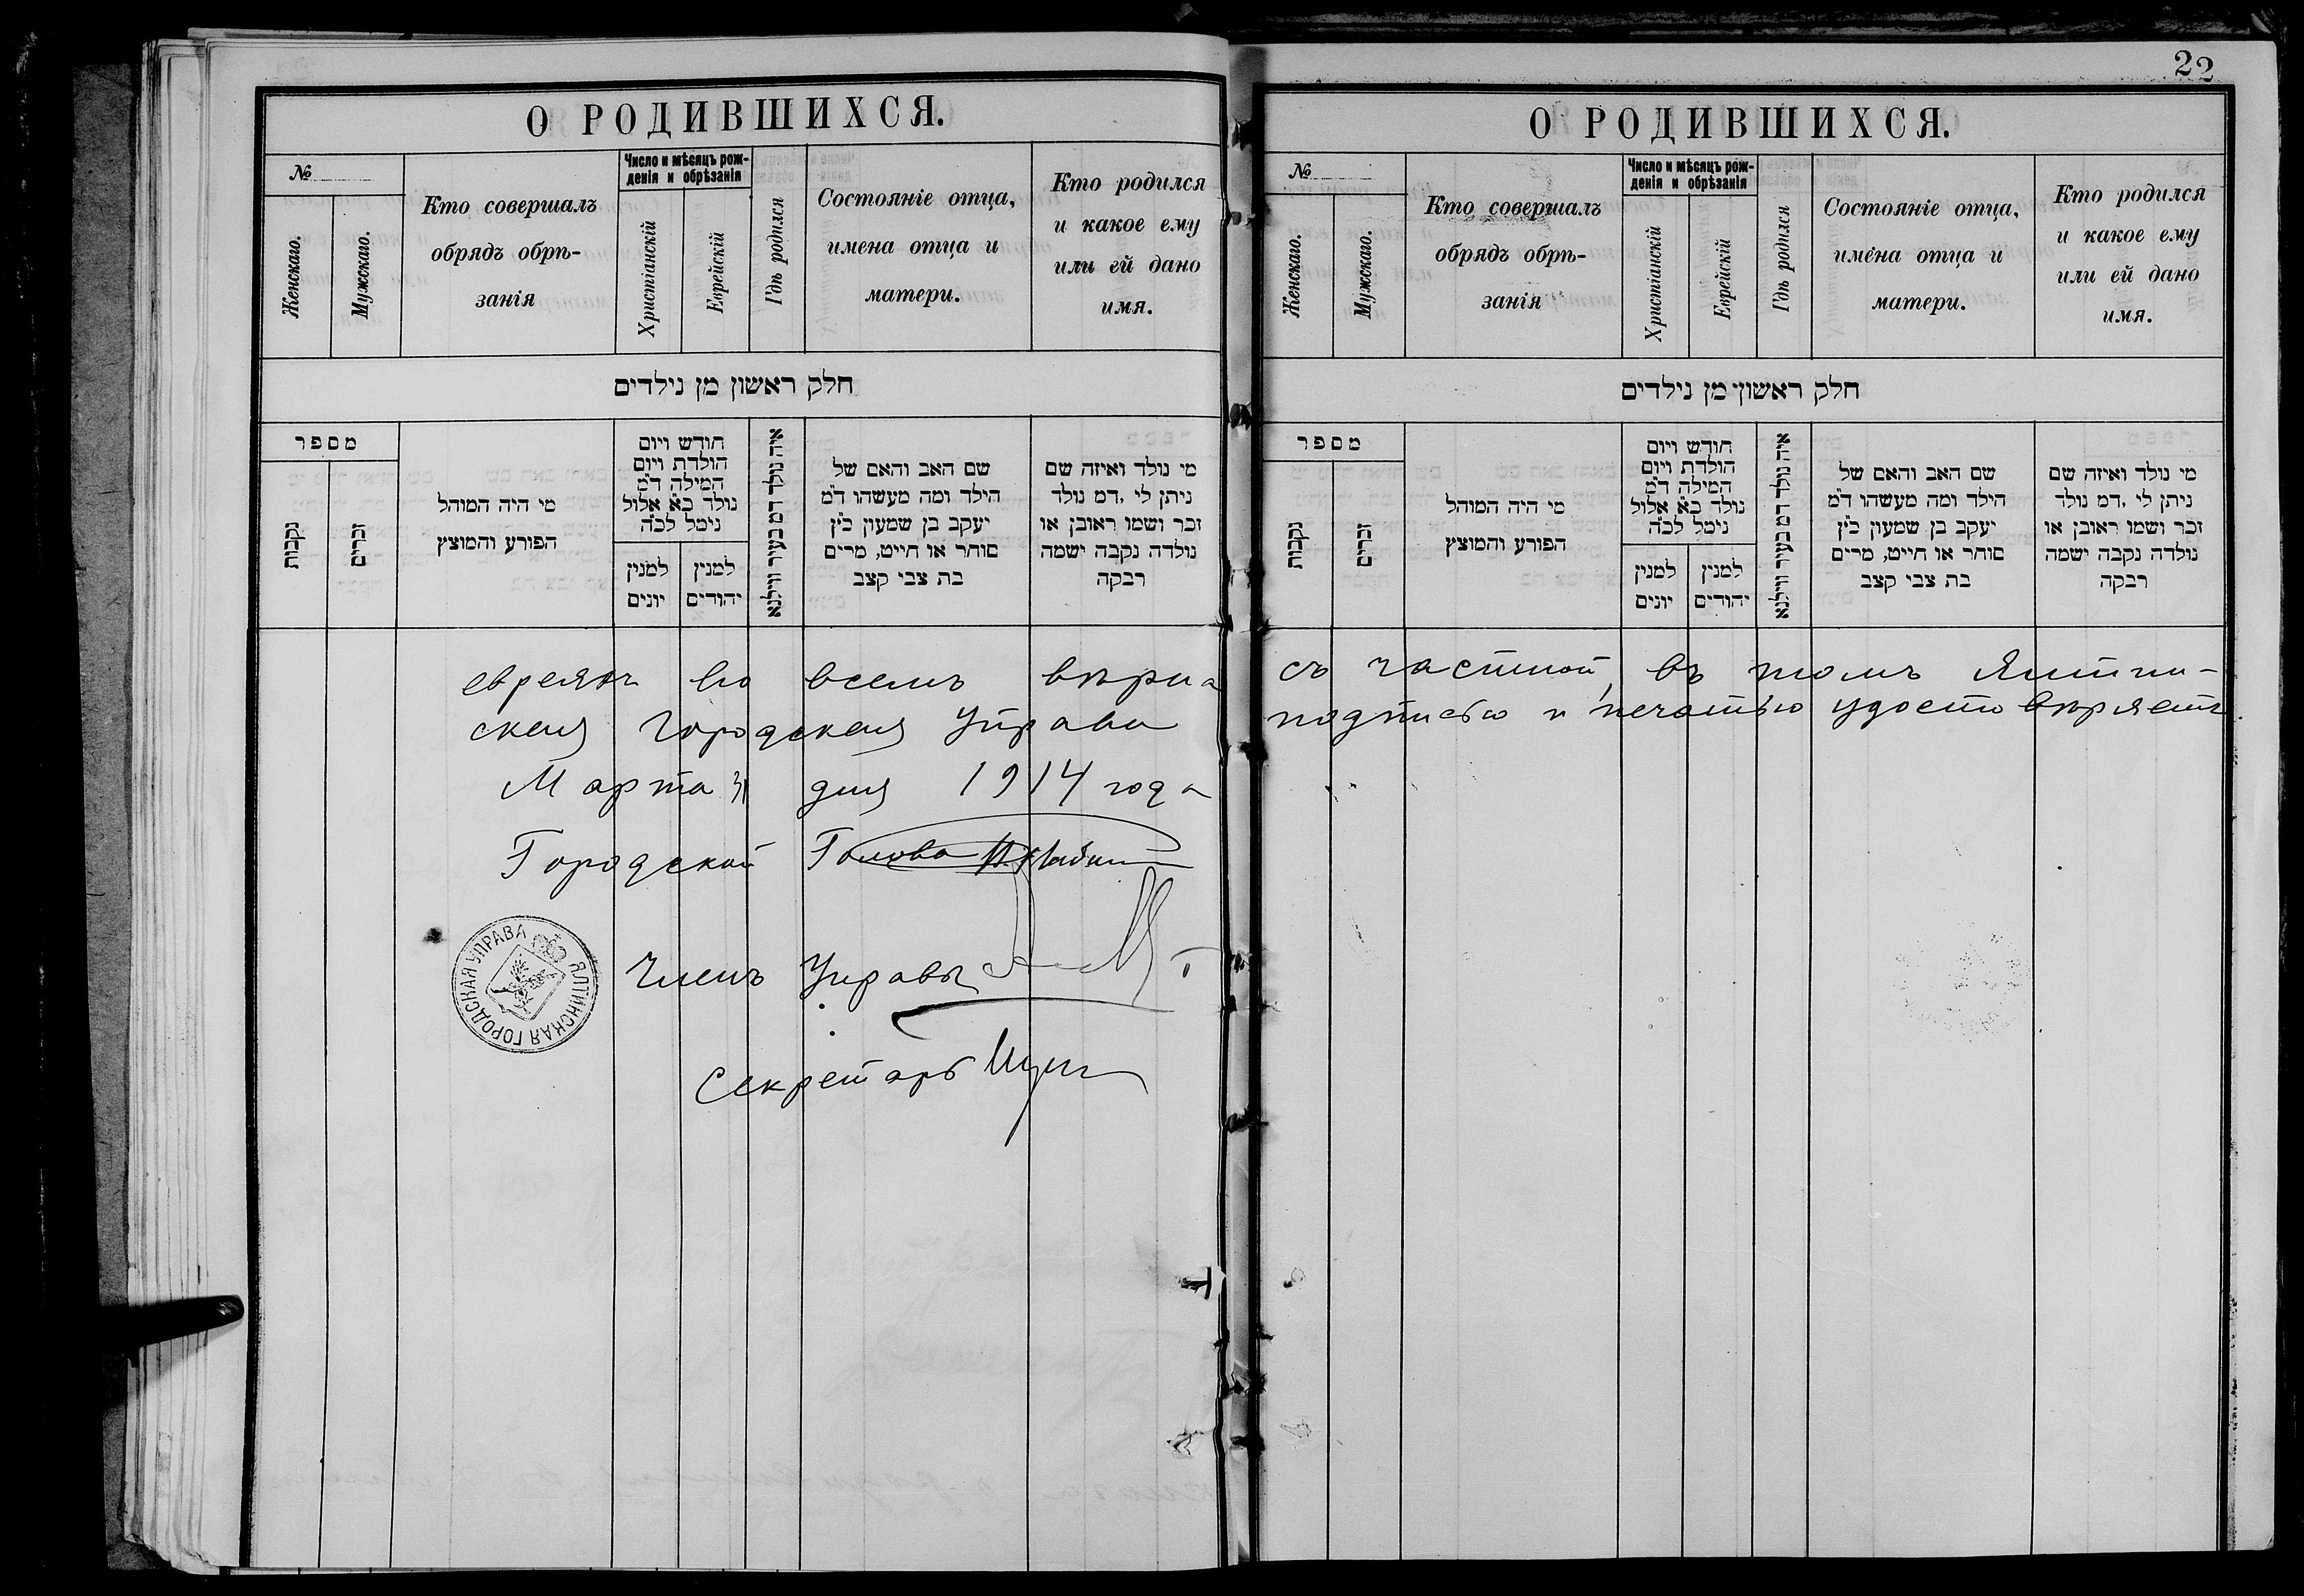 22
О РОДИВШИХСЯ.
№
Женскаго.
Мужскаго.
Кто совершалъ
обрядъ обрѣ-
занія
Число и мѣсяцъ рож-
денія и обрѣзанія
Христіанскій
Еврейскій
Гдѣ родился
Состояніе отца,
имена отца и
матери.
Кто родился
и какое ему
или ей дано
имя.
חלק ראשון מן נילדים
מספר
נקבות
זכרים
מי היה המוהל
הפורע והמוצץ
חודש ויום
הולדת ויום
המילה ד"מ
נולד כ"א אלול
נימל לכ"ה
למנין
יונים
למנין
יהודים
איה נולד דמ בעיר ווילנא
שם האב והאם של
הילד ומה מעשהו ד"מ
יעקב בן שמעון כ"ץ
סוחר או חייט, מרים
בת צבי קצב
מי נולד ואיזה שם
ניתן לי ,דמ נולד
זכר ושמו ראובן או
נולדה נקבה ישמה
רבקה
евреяхъ во всемъ вѣрна
ская Городская Управа
Марта 31 дня 1914 года
Городской Голова
Членъ Управы
Секретарь
ЯЛТИНСКАЯ ГОРОДСКАЯ УПРАВА
О РОДИВШИХСЯ.
№
Женскаго.
Мужскаго.
Кто совершалъ
обрядъ обрѣ-
занія
Число и мѣсяцъ рож-
денія и обрѣзанія
Христіанскій
Еврейскій
Гдѣ родился
Состояніе отца,
имена отца и
матери.
Кто родился
и какое ему
или ей дано
имя.
חלק ראשון מן נילדים
מספר
נקבות
זכרים
מי היה המוהל
הפורע והמוצץ
חודש ויום
הולדת ויום
המילה ד"מ
נולד כ"א אלול
נימל לכ"ה
למנין
יונים
למנין
יהודים
איה נולד דמ בעיר ווילנא
שם האב והאם של
הילד ומה מעשהו ד"מ
יעקב בן שמעון כ"ץ
סוחר או חייט, מרים
בת צבי קצב
מי נולד ואיזה שם
ניתן לי ,דמ נולד
זכר ושמו ראובן או
נולדה נקבה ישמה
רבקה
съ частной, въ томъ Ялтин-
подписью и печатью удостовѣряетъ.